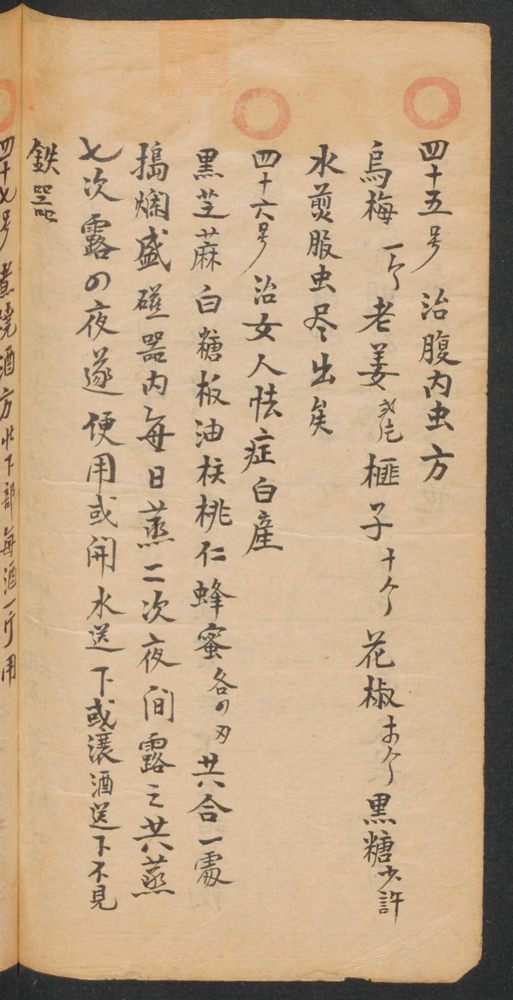 四十五号 治腹内虫方
烏梅一个 老姜 榧子十个 花椒 黑糖少許
水煎服虫尽出矣
四十六号 治女人怯症白産
黑芝蔴白糖板油核桃仁蜂蜜各四刃共合一處
搗爛盛磁器内每日蒸二次夜间露之共蒸
七次露四夜遂便用或開水送下或滚酒送下不見
鉄器
四十七号 煮燒酒方 下部每酒一斤用